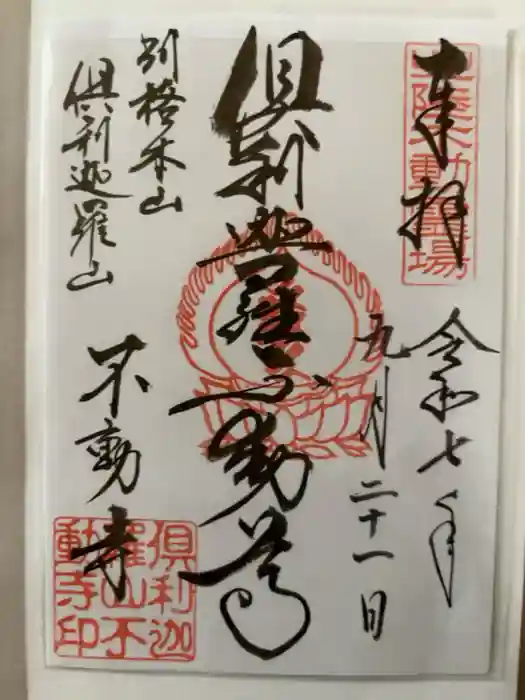 奉拝
三十六不動霊場
令和七年
九月二十一日
倶利迦羅不動尊
別格本山
倶利迦羅山
不動寺
倶利迦
羅山不
動寺印